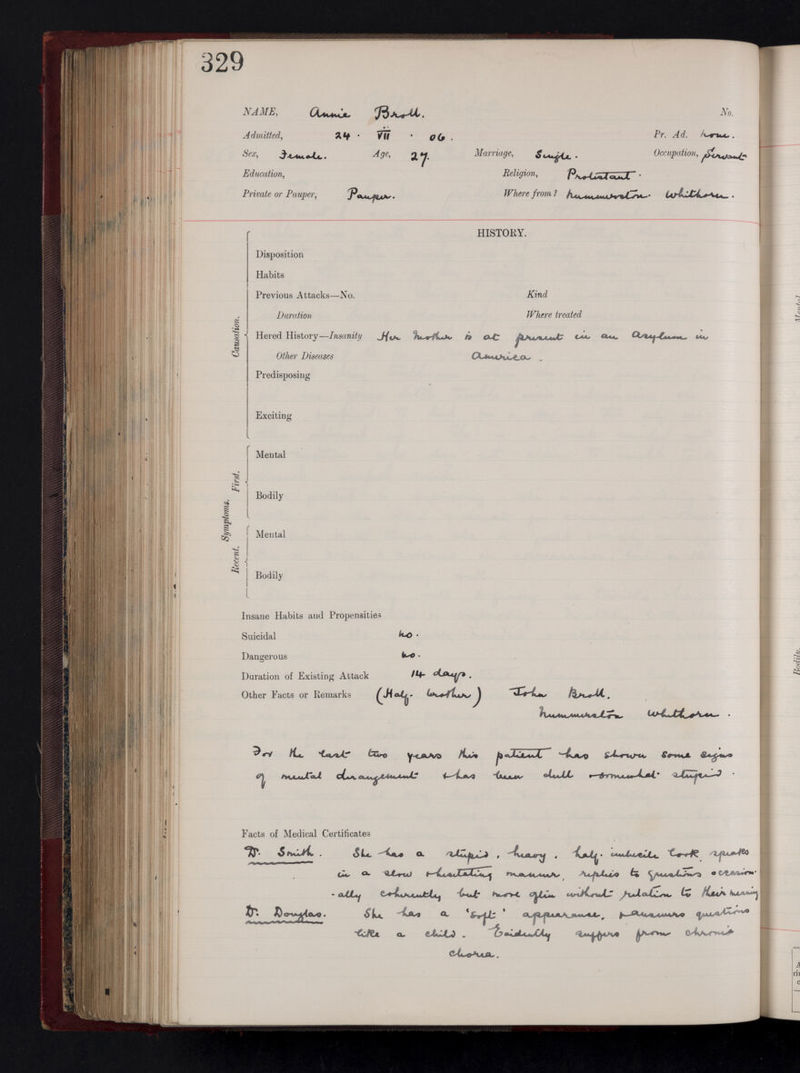 329
NAME, Annie Broll. No.
Admitted, 24 · VII · 06. Pr. Ad. None.
Sex, Female. Age, 27. Marriage, Single. Occupation, Servant
Education, Religion, Protestant.
Private or Pauper, Pauper. Where from? Whithorn.
HISTORY.
Disposition
Habits
Previous Attacks—No. Kind
Duration Where treated
Hered History—Insanity Her Mother is at present in an Asylum in
Other Diseases America.
Predisposing
Exciting
Causation.
Mental
Bodily
First.
Symptoms.
Mental
Bodily
Recent.
Insane Habits and Propensities
Suicidal No.
Dangerous No.
Duration of Existing Attack 14 days.
Other Facts or Remarks (Half-brother) John Broll.
Whithorn.
For the last two years this patient has shown some signs
of mental derangement & has been dull & somewhat stupid.
Facts of Medical Certificates
Dr. Smith. She has a stupid, heavy, half-imbecile look, speaks
in a slow & hesitating manner, replies to questions occasion-
-ally coherently but more often without relation to their meaning
Dr. Douglas. She has a 'soft' appearance, & answers questions
like a child. Evidently suffers from chronic
chorea.
Mental
Bodily.